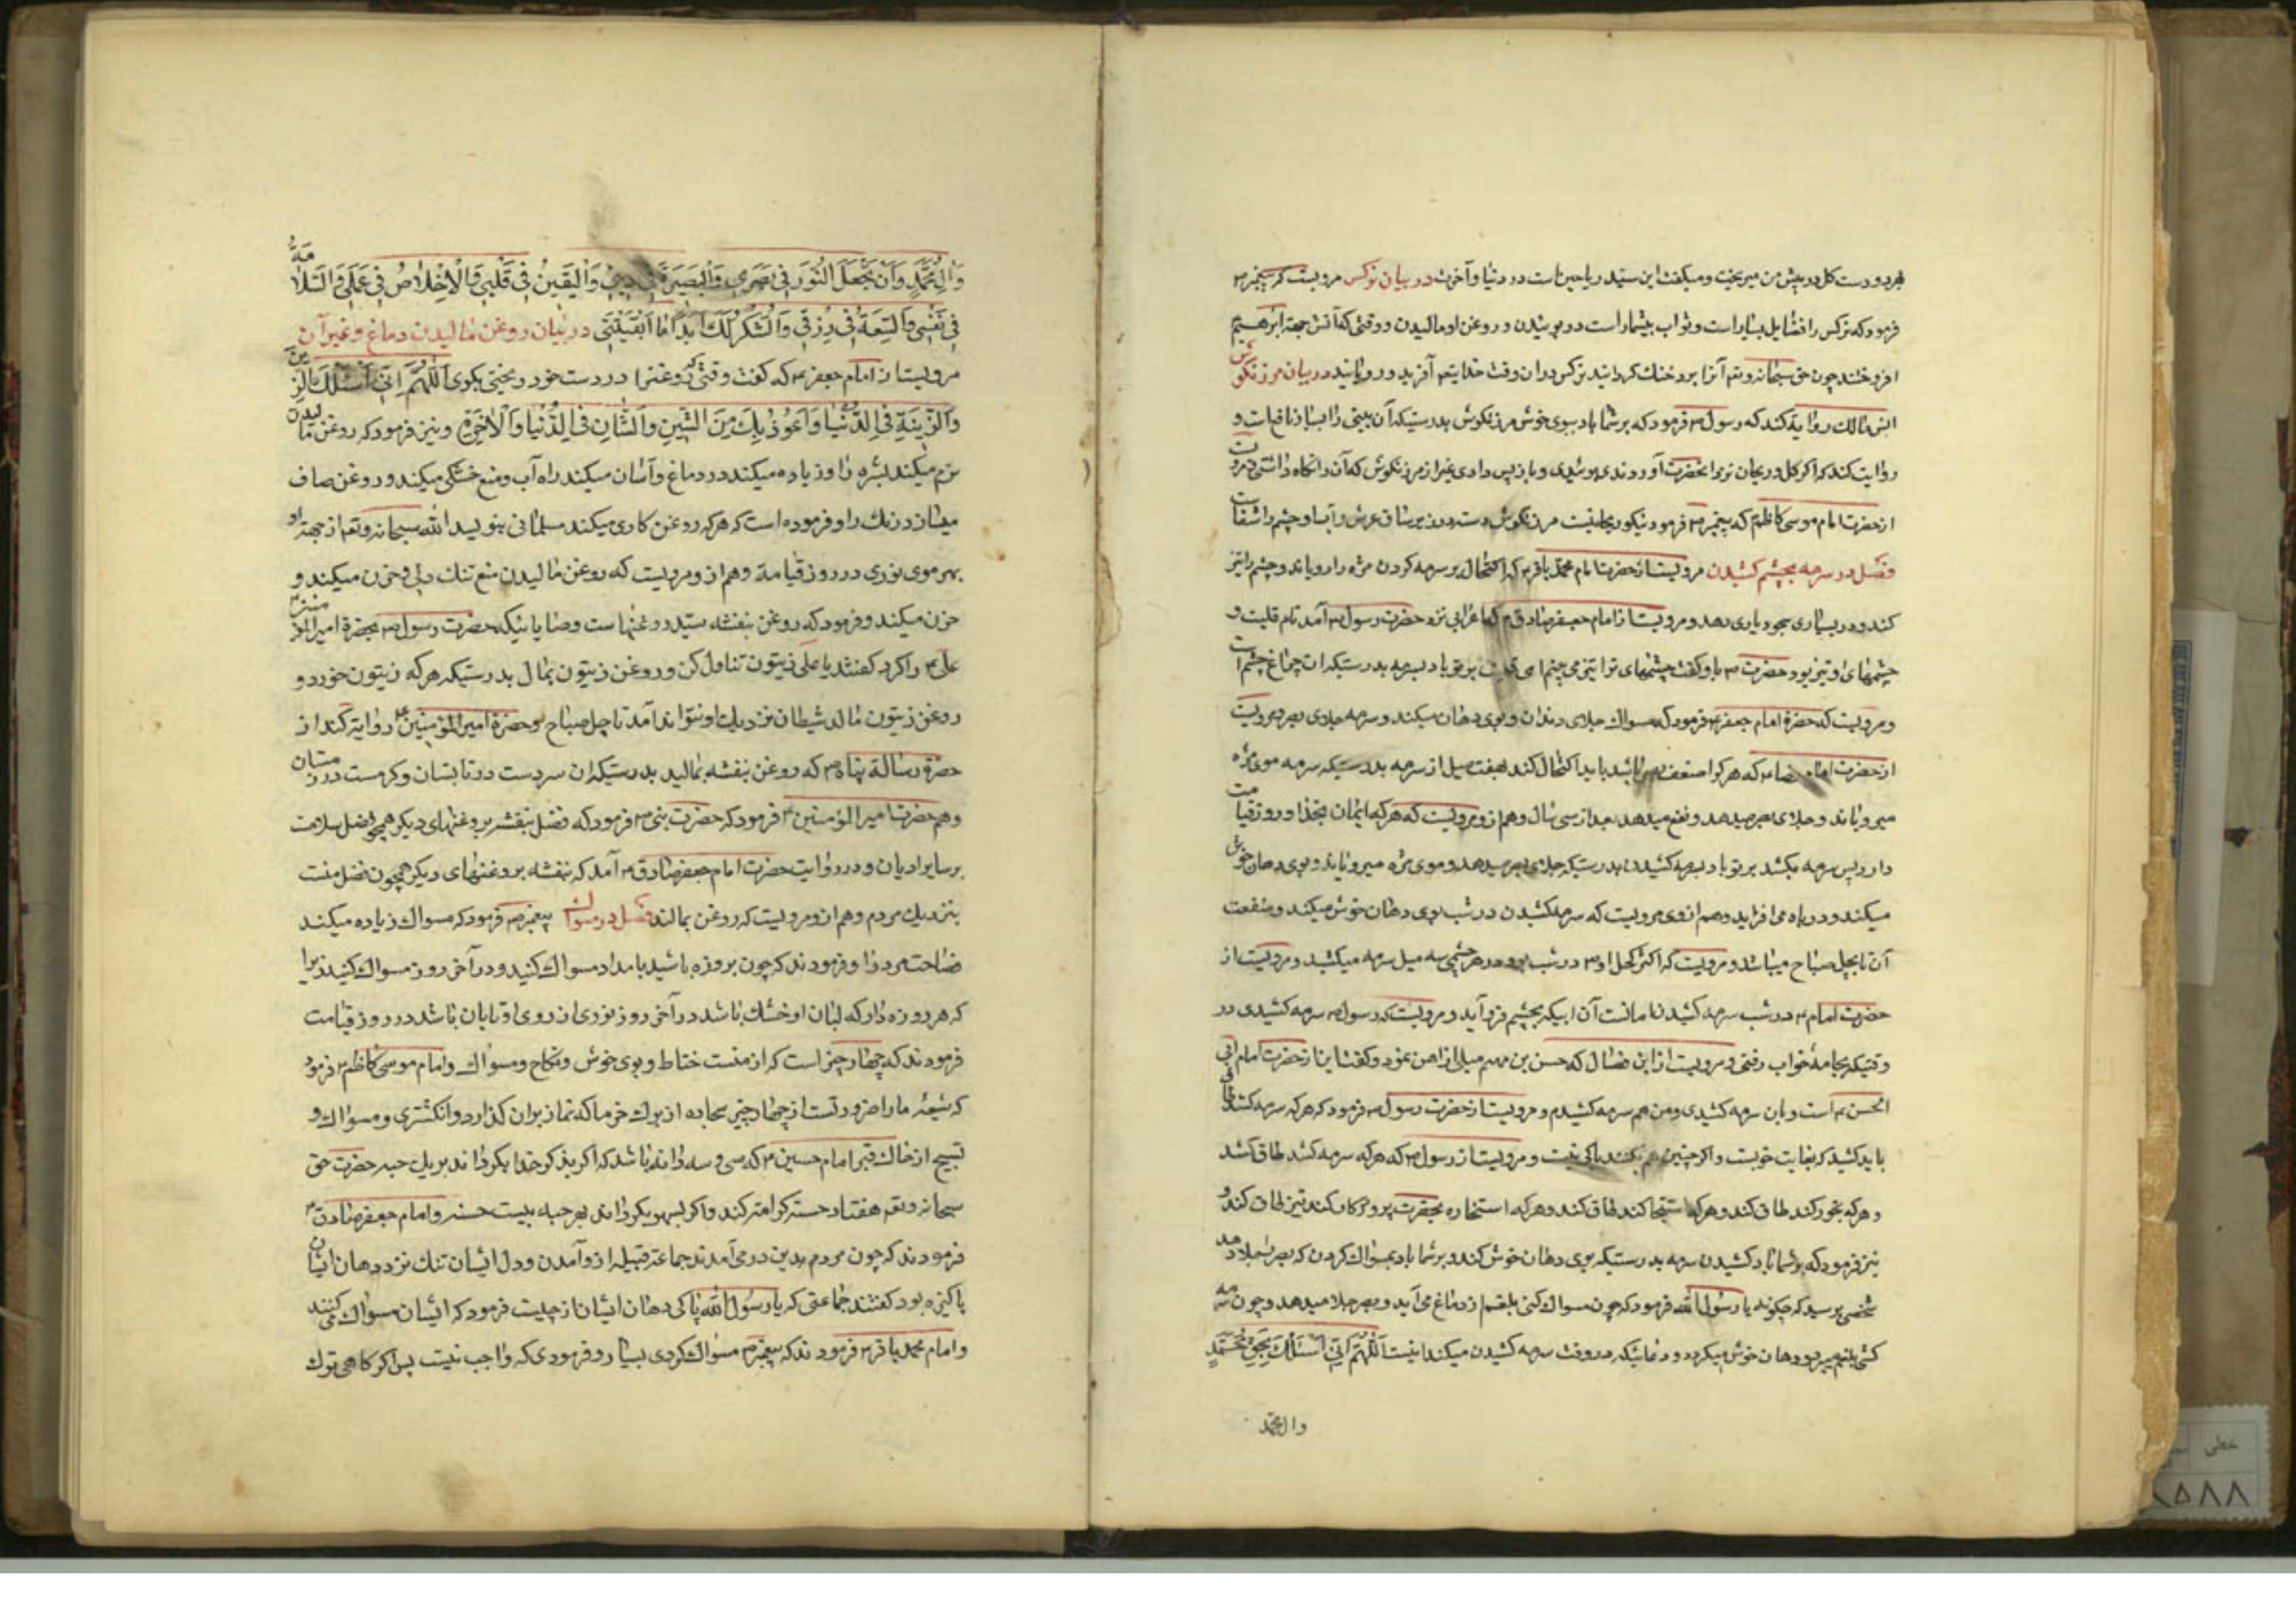 هر دو دست گل در پیش من میریخت و میگفت این سید ریاحین است در دنیا و آخرت در بیان نرکس مرویست که پیغمبر ص
فرمود که نرکس را فضایل بسیار است و ثواب بیشمار است در بوییدن و روغن او مالیدن و وقتی که آتش جهة ابرهیم
افروختند چون حق سبحانه و تعم آنرا برد و خنک کردانید نرکس در ان وقت خدایتعم آفرید و رویانید در بیان مرزنکوش
انس مالک روایة کند که رسول ص فرمود که بر شما باد ببوی خوش مرزنکوش بدرستیکه آن بینی را بسیار نافع است و
روایت کند که اکر کل و ریحان نزد انحضرت آوردندی بوئیدی و باز پس دادی غیر از مرزنکوش که آن را نکاه داشتی و مرویست
از حضرت امام موسی کاظم ع که پیغمبر ص فرمود نیکو ریحانیست مرزنکوش رسته در زیر ساق عرش و آب او چشم را شفاست
فصل در سرمه بچشم کشیدن مرویست از حضرت امام محمد باقر ع که اکتحال بر سرمه کردن مژه را رویاند و چشم را تیز
کند و در بسیاری سجود یاری دهد و مرویست از امام جعفر صادق ع که اعرابی نزد حضرت رسول ص آمد نام قلیت و
چشمهای او تیز بود حضرت ص باو کفت چشمهای ترا تیز می بینم ای قلیت بر تو باد بسرمه بدرستیکه ان چراغ چشم است
و مرویست که حضرة امام جعفر ع فرمود که مسواک جلای دندان و بوی دهان میکند و سرمه جلای بصر و مرویست
از حضرت امام رضا ع که هر که را ضعف بصر باشد باید اکتحال کند بهفت میل از سرمه بدرستیکه سرمه موی مژه
میرویاند و جلای بصر میدهد و نفع میدهد بعد از سی سال و هم از و مرویست که هر که ایمان بخدا و روز قیامت
دارد پس سرمه بکشد بر تو باد بسرمه کشیدن بدرستیکه جلای بصر میدهد و موی مژه میرویاند و بوی دهان خوش
میکند و در باه می افزاید و هم از وی مرویست که سرمه کشیدن در شب بوی دهان خوش میکند و منفعت
آن تا بچهل صباح میباشد و مرویست که اکثر کحل او ص در شب بود و در هر چشمی سه میل سرمه میکشید و مرویست از
حضرت امام ع در شب سرمه کشیدن امانست آن ابیکه بچشم فرو آید و مرویست که رسول ص سرمه کشیدی در
وقتیکه بجامهٔ خواب رفتی و مرویست از ابن فضال که حسن بن جهم میلی از اهن نمود و کفت این از حضرت امام ابی
الحسن ع است و بان سرمه کشیدی و من هم سرمه کشیدم و مرویست از حضرت رسول ص فرمود که هر که سرمه کشد طاق
باید کشید که بغایت خوبست و اکر چنین هم نکنند باکی نیست و مرویست از رسول ص که هر که سرمه کشد طاق کشد
و هر که بخور کند طاق کند و هر که استنجا کند طاق کند و هر که استخاره بحضرت پروردکار کند نیز طاق کند و
نیز فرمود که بر شما باد کشیدن سرمه بدرستیکه بوی دهان خوش کند و بر شما باد بمسواک کردن که بصر را جلا دهد
شخصی پرسید که چکونه یا رسول الله فرمود که چون مسواک کنی بلغم از دماغ می آید و بصر جلا میدهد و چون سرمه
کشی بلغم میبرد و دهان خوش میکردد و دعائیکه در وقت سرمه کشیدن میکند اینست اَللّٰهُمَّ اِنّی اَسْئَلُكَ بِحَقِّ مُحَمَّدٍ
وال محمد
وَالِ مُحَمَّدٍ وَاَنْ تَجْعَلَ النُّورَ فِی بَصَرِی وَالْبَصِیرَةَ فِی دِینِی وَالْیَقِینَ فِی قَلْبِی وَالْاِخْلاصَ فِی عَمَلِی وَالسَّلامَةَ
فِی نَفْسِی وَالسِّعَةَ فِی رِزْقِی وَالشُّكْرَ لَكَ اَبَداً مَا اَبْقَیْتَنِی در بیان روغن مالیدن دماغ و غیر آن
مرویست از امام جعفر ع که کفت وقتی که روغنرا در دست خود ریختی بکوی اَللّٰهُمَّ اِنّی اَسْئَلُكَ الزَّینَ
وَالزِّینَةَ فِی الدُّنْیَا وَاَعُوذُ بِكَ مِنَ الشَّیْنِ وَالشَّانِ فِی الدُّنْیَا وَالْاٰخِرَةِ و نیز فرمود که روغن مالیدن
نرم میکند بشره را و زیاده میکند در دماغ و آسان میکند راه آب و منع خشکی میکند و روغن صاف
میسازد رنک را و فرموده است که هر که روغن کاری میکند مسلمانی بنویسد الله سبحانه و تعم از جهة او
بهر موی نوری در روز قیامة و هم از و مرویست که روغن مالیدن منع تنک دلی و حزن میکند و
حزن میکند و فرمود که روغن بنفشه سید روغنهاست وصایائیکه حضرت رسول ص بحضرة امیر المؤمنین
علی ع را کرد کفتند یا علی زیتون تناول کن و روغن زیتون بمال بدرستیکه هر که زیتون خورد و
روغن زیتون مالد شیطان نزدیک او نتواند آمد تا چهل صباح و حضرة امیر المؤمنین ع روایة کند از
حضرة رسالة پناه ص که روغن بنفشه بمالید بدرستیکه ان سردست در تابستان و کرمست در زمستان
و هم حضرت امیر المؤمنین ع فرمود که حضرت نبی ص فرمود که فضل بنفشه بروغنهای دیکر همچو فضل اسلامست
بر سایر ادیان و در روایت حضرت امام جعفر صادق ع آمد که بنفشه بروغنهای دیکر همچون فضل منست
بنزدیک مردم و هم از و مرویست که روغن بمالند فصل در مسواک پیغمبر ص فرمود که مسواک زیاده میکند
فصاحت مرد را و فرمودند که چون بروزه باشید بامداد مسواک کنید و در آخر روز مسواک نکنید زیرا
که هر روزه دار که لبان او خشک باشد در آخر روز نوری از روی او تابان باشد در روز قیامت
فرمودند که چهار چیز است که از منست ختاط و بوی خوش و نکاح و مسواک و امام موسی کاظم ع فرمود
که شیعهٔ ما را ضرورتست از چهار چیز سجاده از برک خرما که نماز بران کذارد و انکشتری و مسواک و
تسبیح از خاک قبر امام حسین ع که سی و سه دانه باشد که اکر بذکر خدا بکرداند بر یک حبه حضرت حق
سبحانه و تعم هفتاد حسنه کرامت کند و اکر بسهو بکرداند بهر حبه بیست حسنه و امام جعفر صادق ع
فرمودند که چون مردم بدین در می آمدند جماعة قبیله از و آمدن و دل ایشان تنک نزد دهان ایشان
پاکیزه بود کفتند جماعتی که یا رسول الله پاکی دهان ایشان از چیست فرمود که ایشان مسواک می کنند
و امام محمد باقر ع فرمودند که پیغمبر ص مسواک کردی بسیار و فرمودی که واجب نیست پس اکر کاهی ترک
خطی